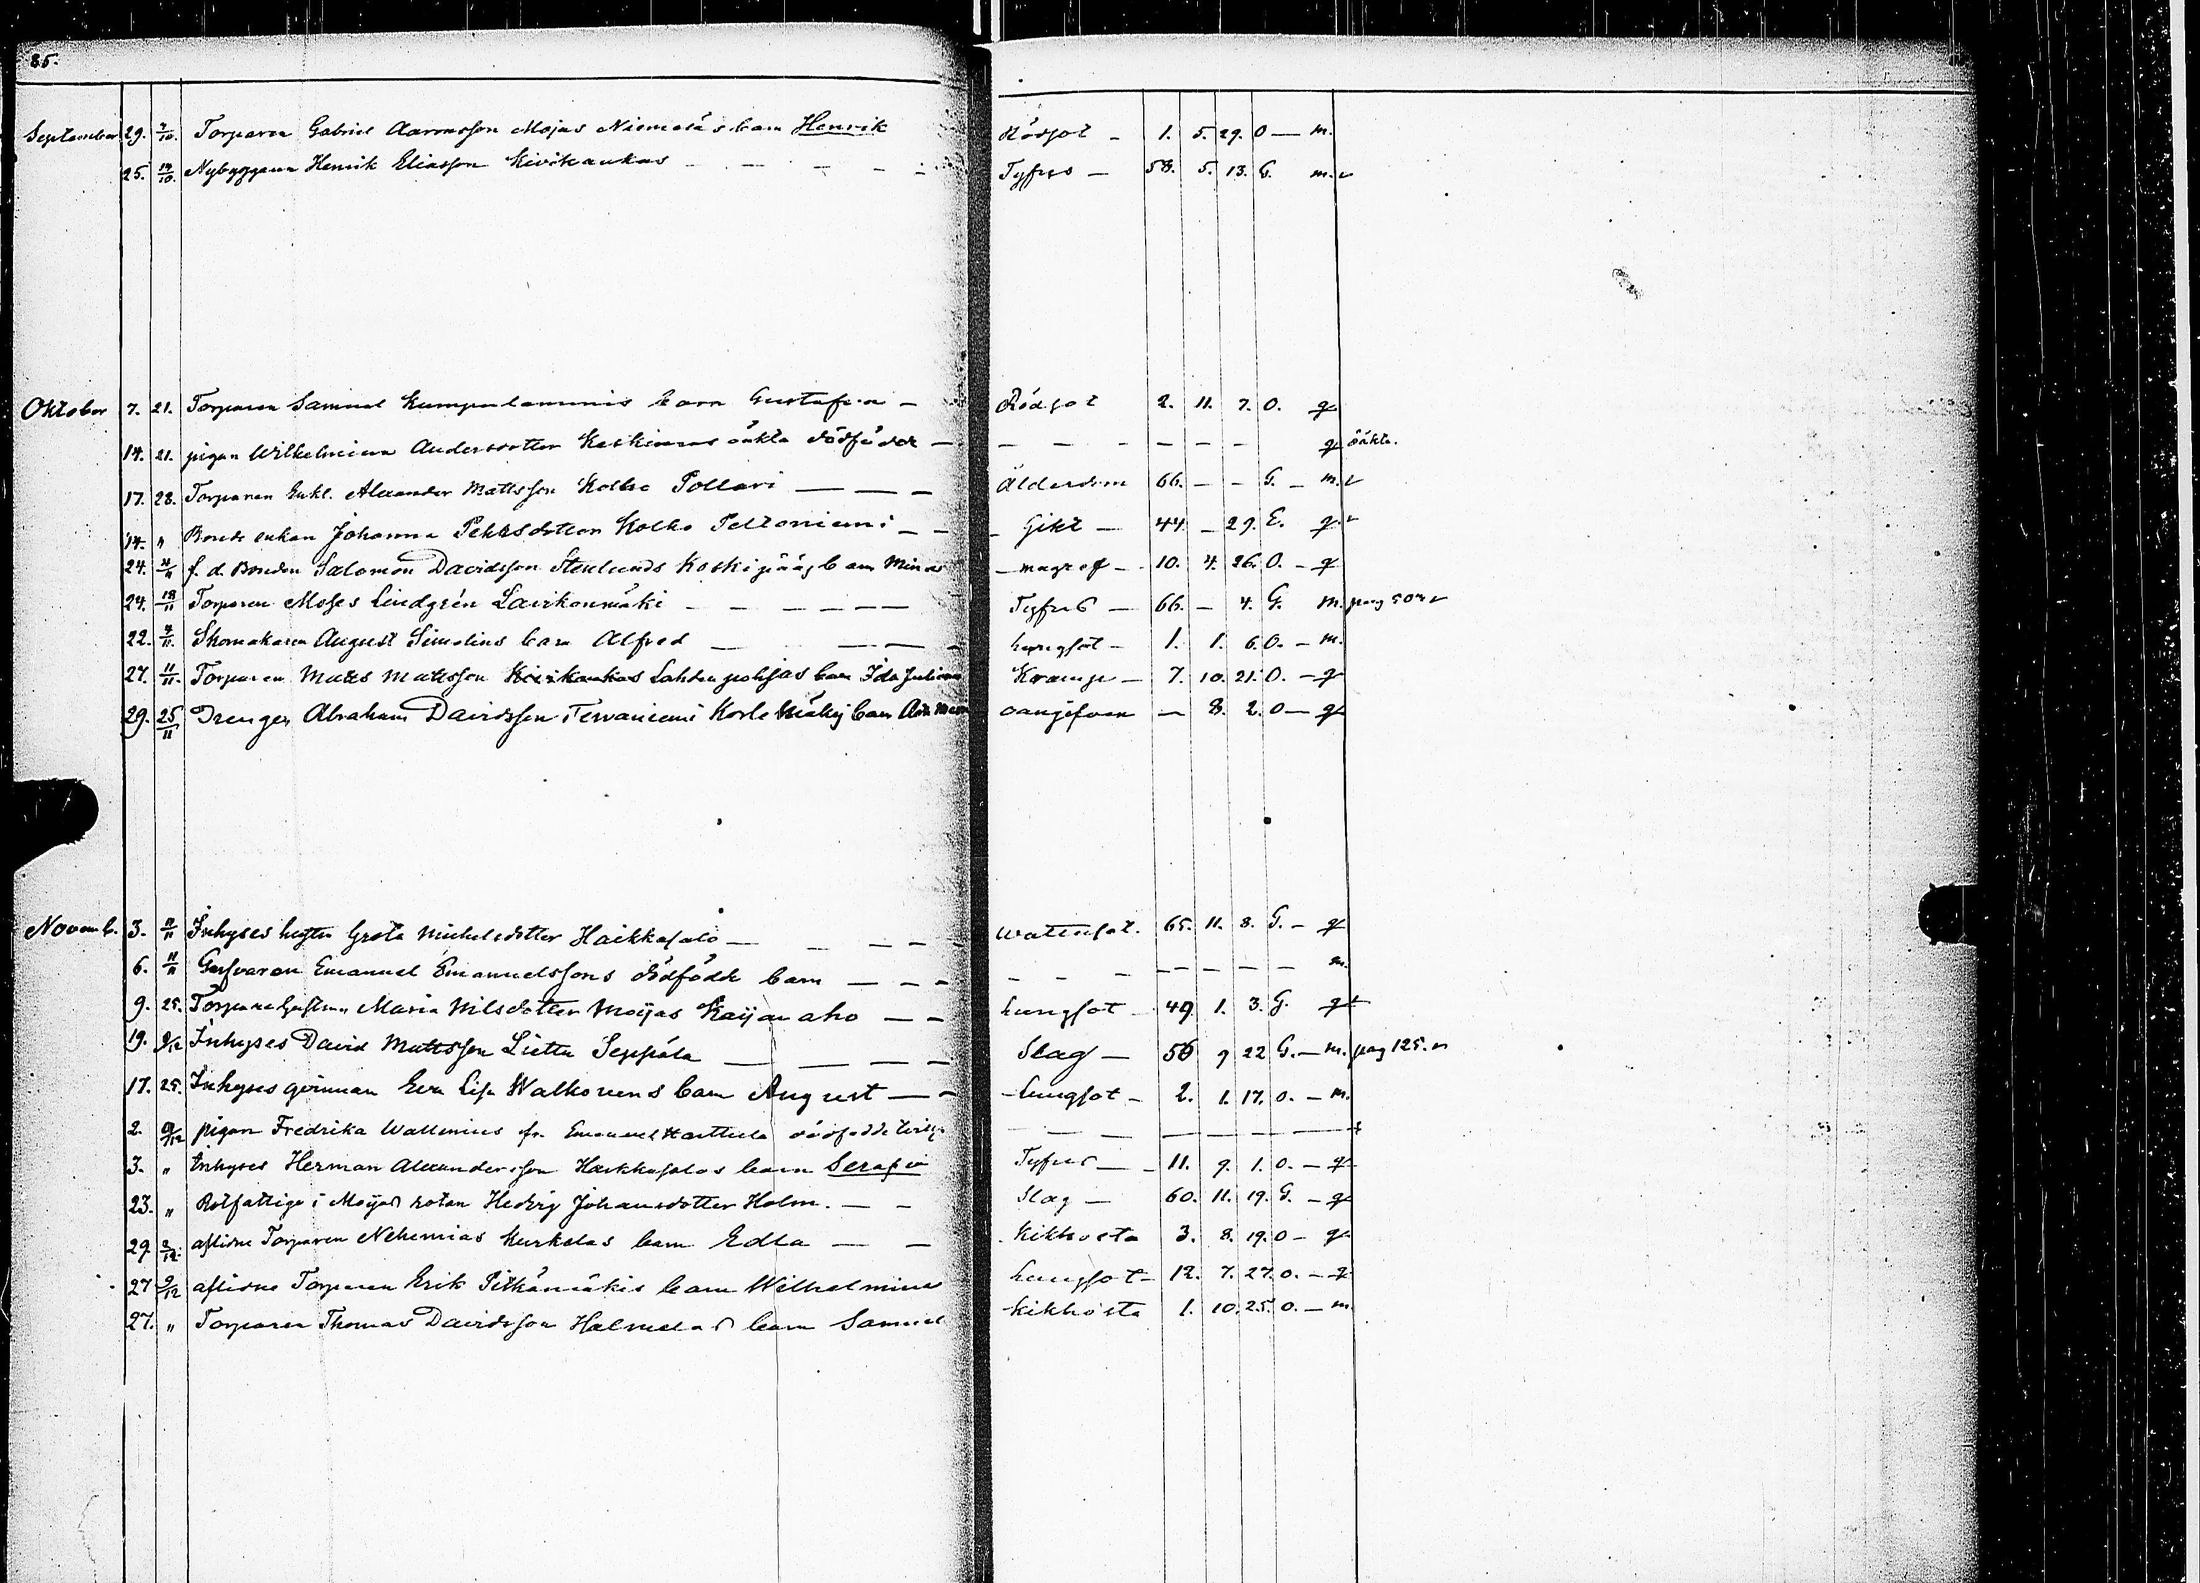 85.
September 29. 7/10. Torparen Gabriel Aaronsson Mojas Niemeläs barn Henrik Rödsot - 1. 5. 29. O — m.
25. 14/10. Nybyggaren Henrik Eliasson Kivikankas - - - - Tyfus - 58. 5. 13. G. m.
Oktober 7. 21. Torparen Samuel barn Gustafva - Rödsot 2. 11. 7. O. q
14. 21. pigan Wilhelmina Andersdotter oäkta dödfödde - - - - - - - q oäkta.
17. 28. Torparen Enkl. Alexander Mattsson Kolho Pollari - - - Ålderdom 66. - - G. - m.
14. " Bonde enkan Johanna Pehrsdotter Kolho Peltoniemi - - Gikt - 44. - 29. E. q
24. 4/11 f. d. Bonden Salomon Davidsson Stenlunds Koskipääs barn Minas - magref - 10. 4. 26. O. - q
24. 18/11 Torparen Moses Lindgrén Savikonmäki - - - - - Tyfus - 66. - 4. G. m. pag 504
22. 4/11. Skomakaren August Simelius barn Alfred - - - - Lungsot - 1. 1. 6. O. - m.
27. 11/11. Torparen Matts Mattsson Kivikankas Lahdenpohjas barn Ida Juliana Kramp - 7. 10. 21. O. - q
29. 25/11 Drengen Abraham Davidsson Tervaniemi barn - 8. 2. O - q
Novemb. 3. 11/11 Inhyses Greta Michelsdotter Haikkasalo - - - - Wattusot. 65. 11. 8. G. - q
6. 11/11 Emanuel Emanuelssons dödfödde barn - - - - - - - - - - - m.
9. 25. Torpare hustrun Maria Nilsdotter Moijas Kaijanaho - - Lungsot - 49 1. 3. G. q
19. 9/12 Inhyses David Mattsson Lietto Seppälä - - - Slag - 56 9 22 G. - m. pag 125.
17. 25. Inhyses qvinnan Eva Lisa Walkonens barn August - - Lungsot - 2. 1. 17. O. - m.
2. 9/12 pigan Fredrika Wallenius fr. Emanuel dödfödde - - - - - -
3. " Inhyses Herman Alexandersson Haikkasalos barn Serafia Tyfus - - 11. 9. 1. O. - q
23. " Rotfattige i Moijas rotan Hedvig Johansdotter Holm. - - Slag - 60. 11. 19. G. - q
29. 2/12. aflidne Torparen Nehemias Kurkelas barn Edla - - Kikhosta 3. 8. 19. O - q
27 9/12 aflidne Torparen Erik Pitkämäkis barn Wilhelmina Lungsot - 12. 7. 27. O. - q
27. " Torparen Thomas Davidsson barn Samuel Kikhosta 1. 10. 25. O. - m.